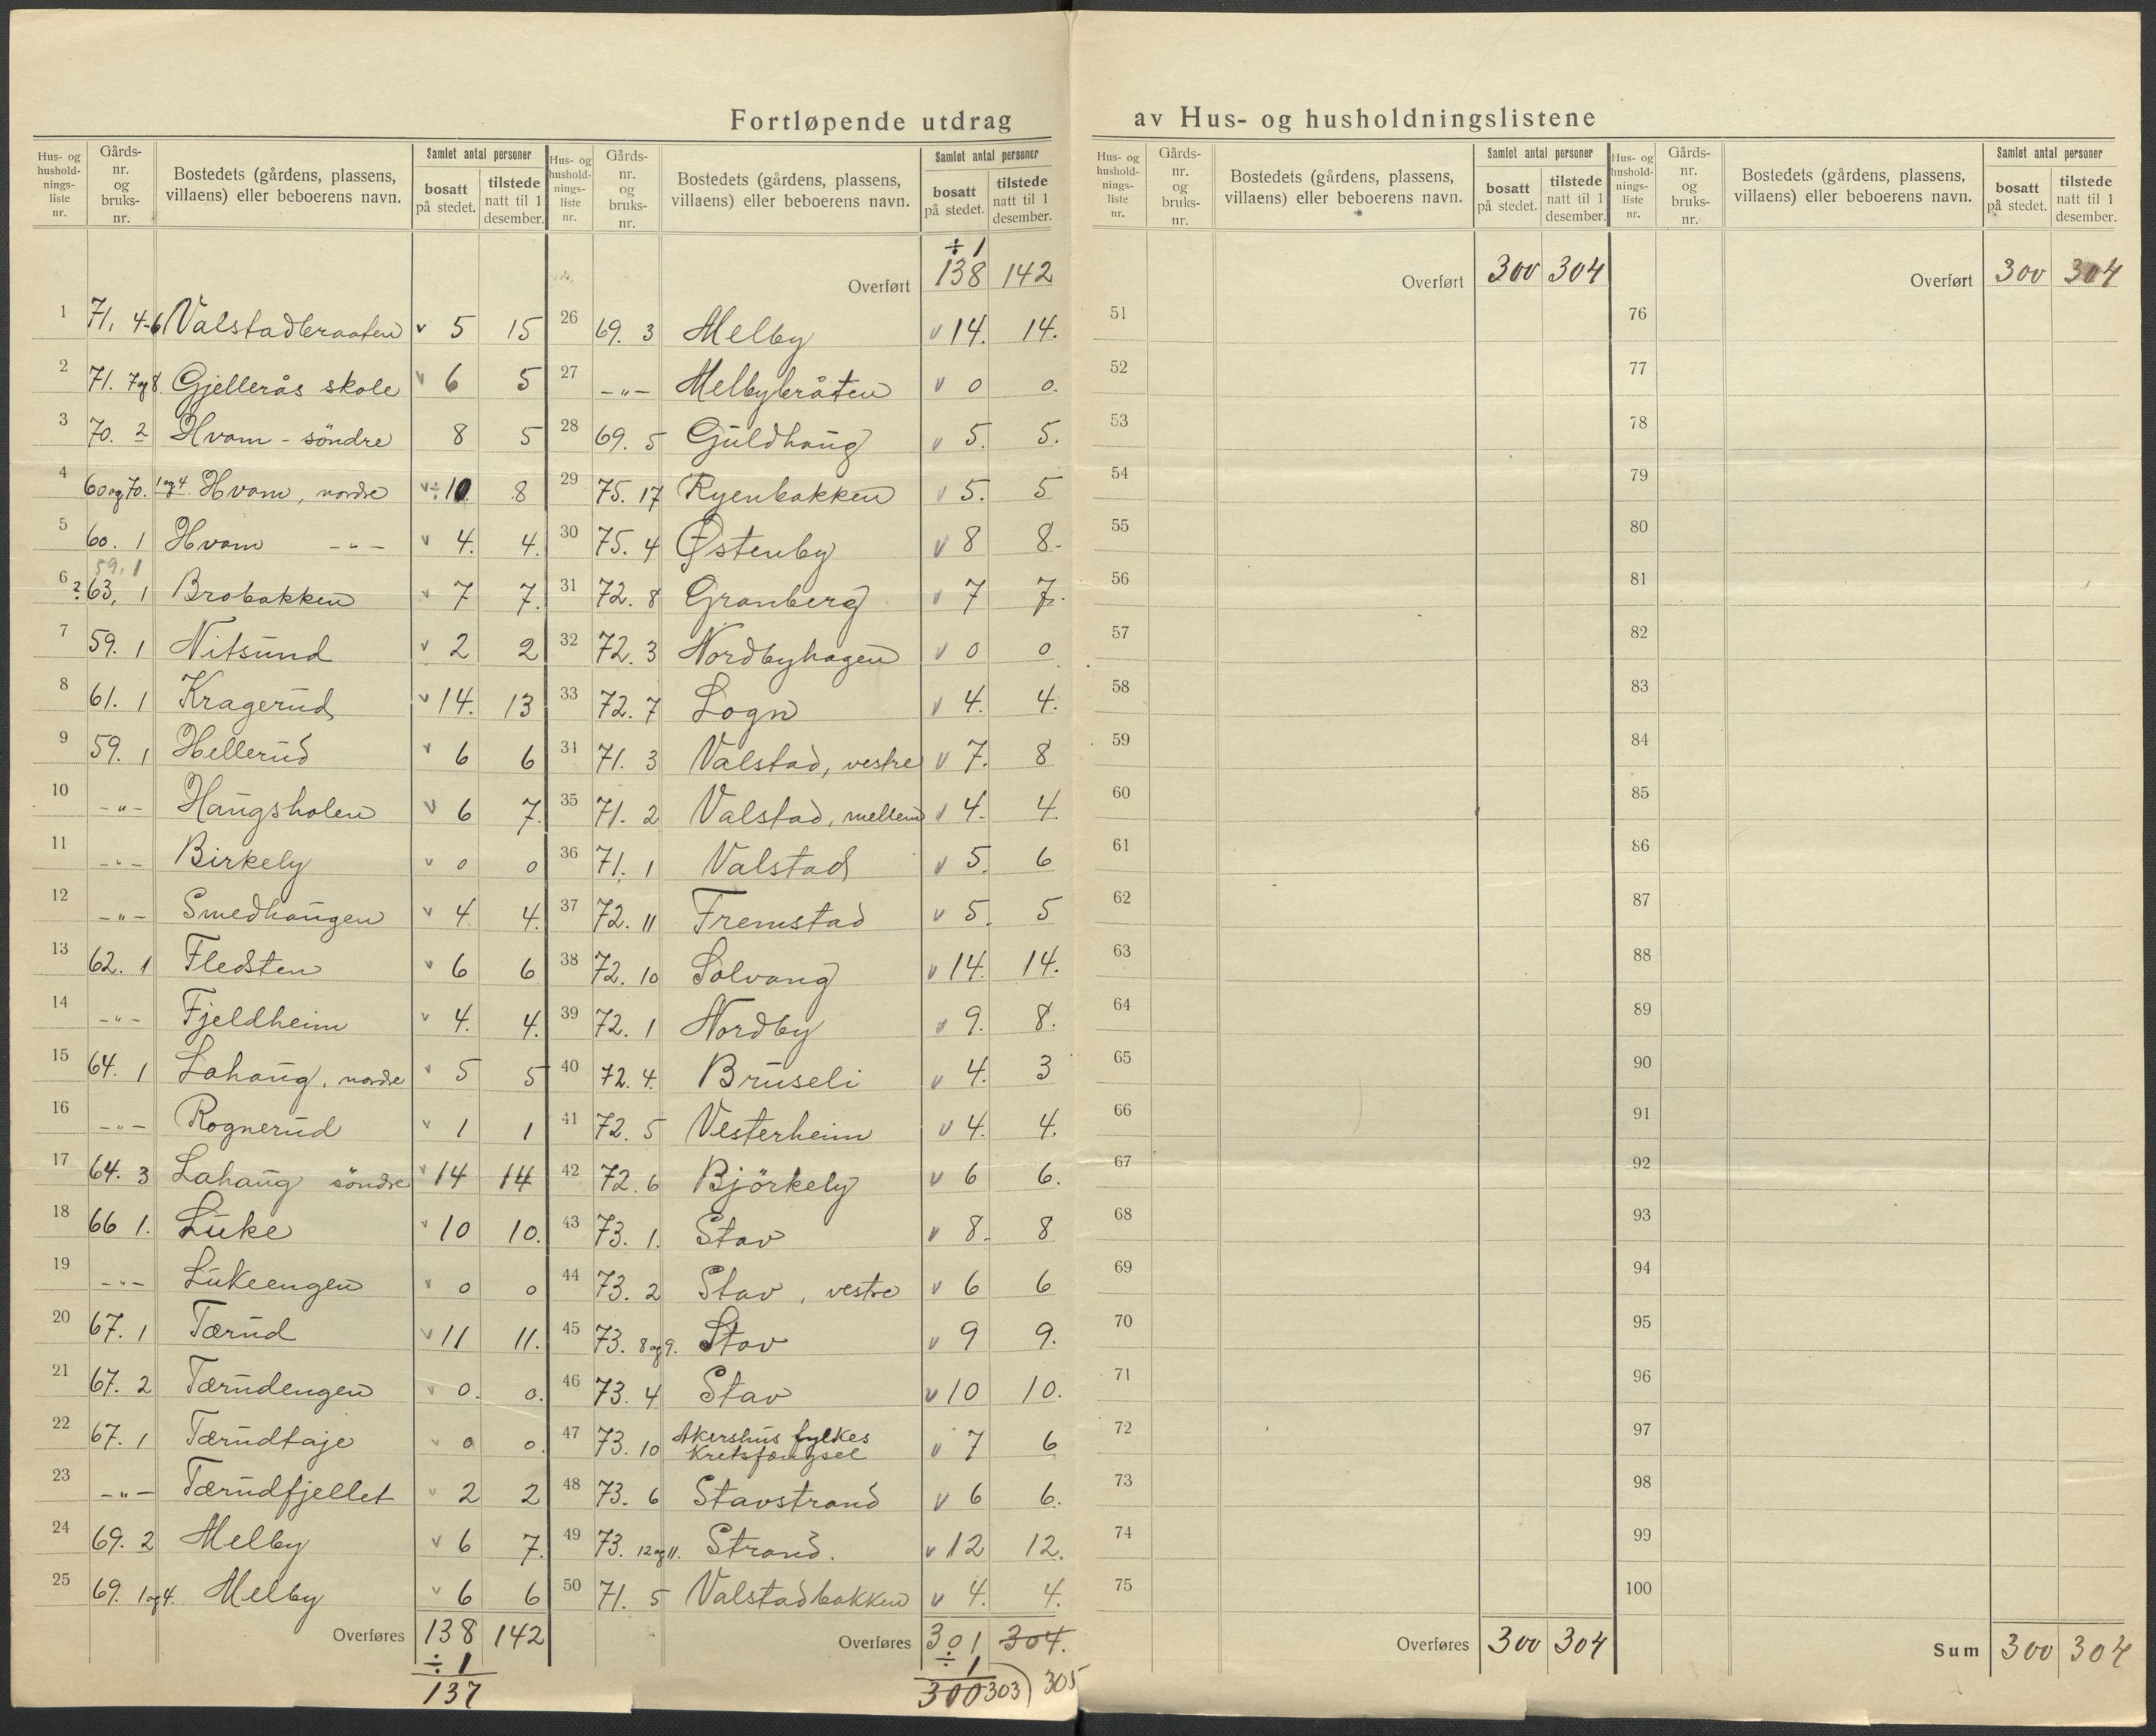 Fortløpende utdrag av Hus- og husholdningslistene
Hus- og hushold-nings-liste nr. | Gårds-nr. og bruks-nr. | Bostedets (gårdens, plassens, villaens) eller beboerens navn. | Samlet antal personer | bosatt på stedet. | tilstede natt til 1 desember.
1 71, 4-6 Valstadbraaten v 5 15
2 71. 7og8. Gjellerås skole v 6 5
3 70. 2 Hvam - söndre 8 5
4 60og70. 1og4 Hvam, nordre v ÷ 10. 8
5 60. 1 Hvam -"- v 4. 4.
59. 1
6 ? 63, 1 Brobakken v 7 7.
7 59. 1 Nitsund v 2 2
8 61. 1 Kragerud v 14. 13
9 59. 1 Hellerud v 6 6
10 -"- Haugsholen v 6 7.
11 -"- Birkely v 0 0
12 -"- Smedhaugen v 4. 4.
13 62. 1 Fledsten v 6 6
14 -"- Fjeldheim v 4. 4.
15 64. 1 Lahaug, nordre v 5 5
16 -"- Rognerud v 1 1
17 64. 3 Lahaug söndre v 14 14
18 66 1. Luke v 10 10.
19 -"- Lukeengen v 0 0
20 67. 1 Tærud v 11 11.
21 67. 2 Tærudengen v 0. 0.
22 67. 1 Tærudtaje v 0 0.
23 -"- Tærudfjellet v 2 2
24 69. 2 Melby v 6 7.
25 69. 1og4. Melby v 6 6
Overføres 138 142
÷ 1
137
Hus- og hushold-nings-liste nr. | Gårds-nr. og bruks-nr. | Bostedets (gårdens, plassens, villaens) eller beboerens navn. | Samlet antal personer | bosatt på stedet. | tilstede natt til 1 desember.
÷ 1
Overført 138 142
26 69. 3 Melby v 14. 14.
27 -"- Melbybråten v 0 0.
28 69. 5 Guldhaug v 5. 5.
29 75. 17 Ryenbakken v 5. 5
30 75. 4 Østenby v 8 8.
31 72. 8 Granberg v 7 7.
32 72. 3 Nordbyhagen v 0 0
33 72. 7 Logn v 4. 4.
34 71. 3 Valstad, vestre v 7. 8
35 71. 2 Valstad, mellem v 4. 4.
36 71. 1 Valstad v 5. 6
37 72. 11 Fremstad v 5. 5
38 72. 10 Solvang v 14. 14.
39 72. 1 Nordby v 9. 8.
40 72. 4. Bruseli v 4. 3
41 72. 5 Vesterheim v 4. 4.
42 72. 6 Björkely v 6 6.
43 73. 1. Stav v 8. 8
44 73. 2 Stav, vestre v 6 6
45 73. 8og9. Stav v 9 9.
46 73. 4 Stav v 10 10.
47 73. 10 Akershus fylkes Kretsfængsel v 7 6
48 73. 6 Stavstrand v 6 6.
49 73. 12og11. Strand. v 12 12.
50 71. 5 Valstadbakken v 4. 4.
Overføres 301 304.
÷ 1
300 303) 305
Hus- og hushold-nings-liste nr. | Gårds-nr. og bruks-nr. | Bostedets (gårdens, plassens, villaens) eller beboerens navn. | Samlet antal personer | bosatt på stedet. | tilstede natt til 1 desember.
Overført 300 304
51
52
53
54
55
56
57
58
59
60
61
62
63
64
65
66
67
68
69
70
71
72
73
74
75
Overføres 300 304
Hus- og hushold-nings-liste nr. | Gårds-nr. og bruks-nr. | Bostedets (gårdens, plassens, villaens) eller beboerens navn. | Samlet antal personer | bosatt på stedet. | tilstede natt til 1 desember.
Overført 300 304
76
77
78
79
80
81
82
83
84
85
86
87
88
89
90
91
92
93
94
95
96
97
98
99
100
Sum 300 304